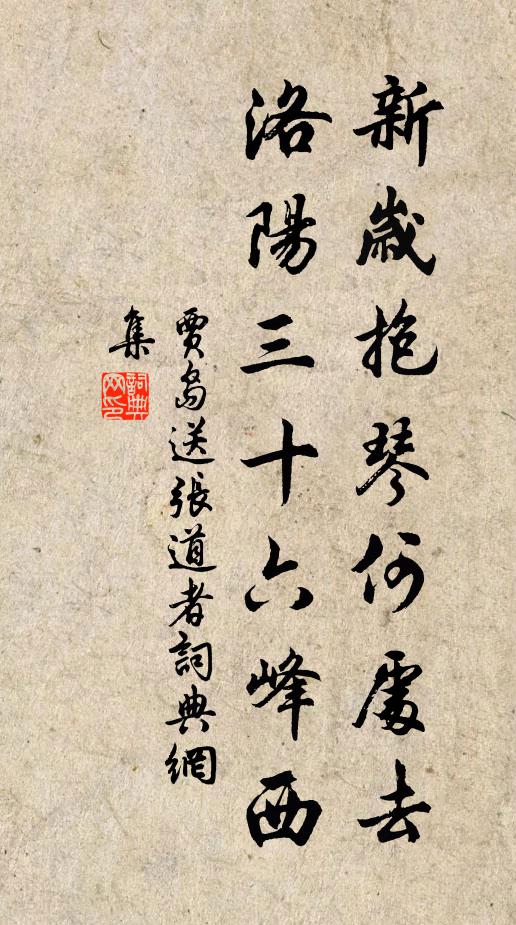 新歲抱琴何處去
洛陽三十六峰西
賈島送張道者詞典網
集
詞典
网印